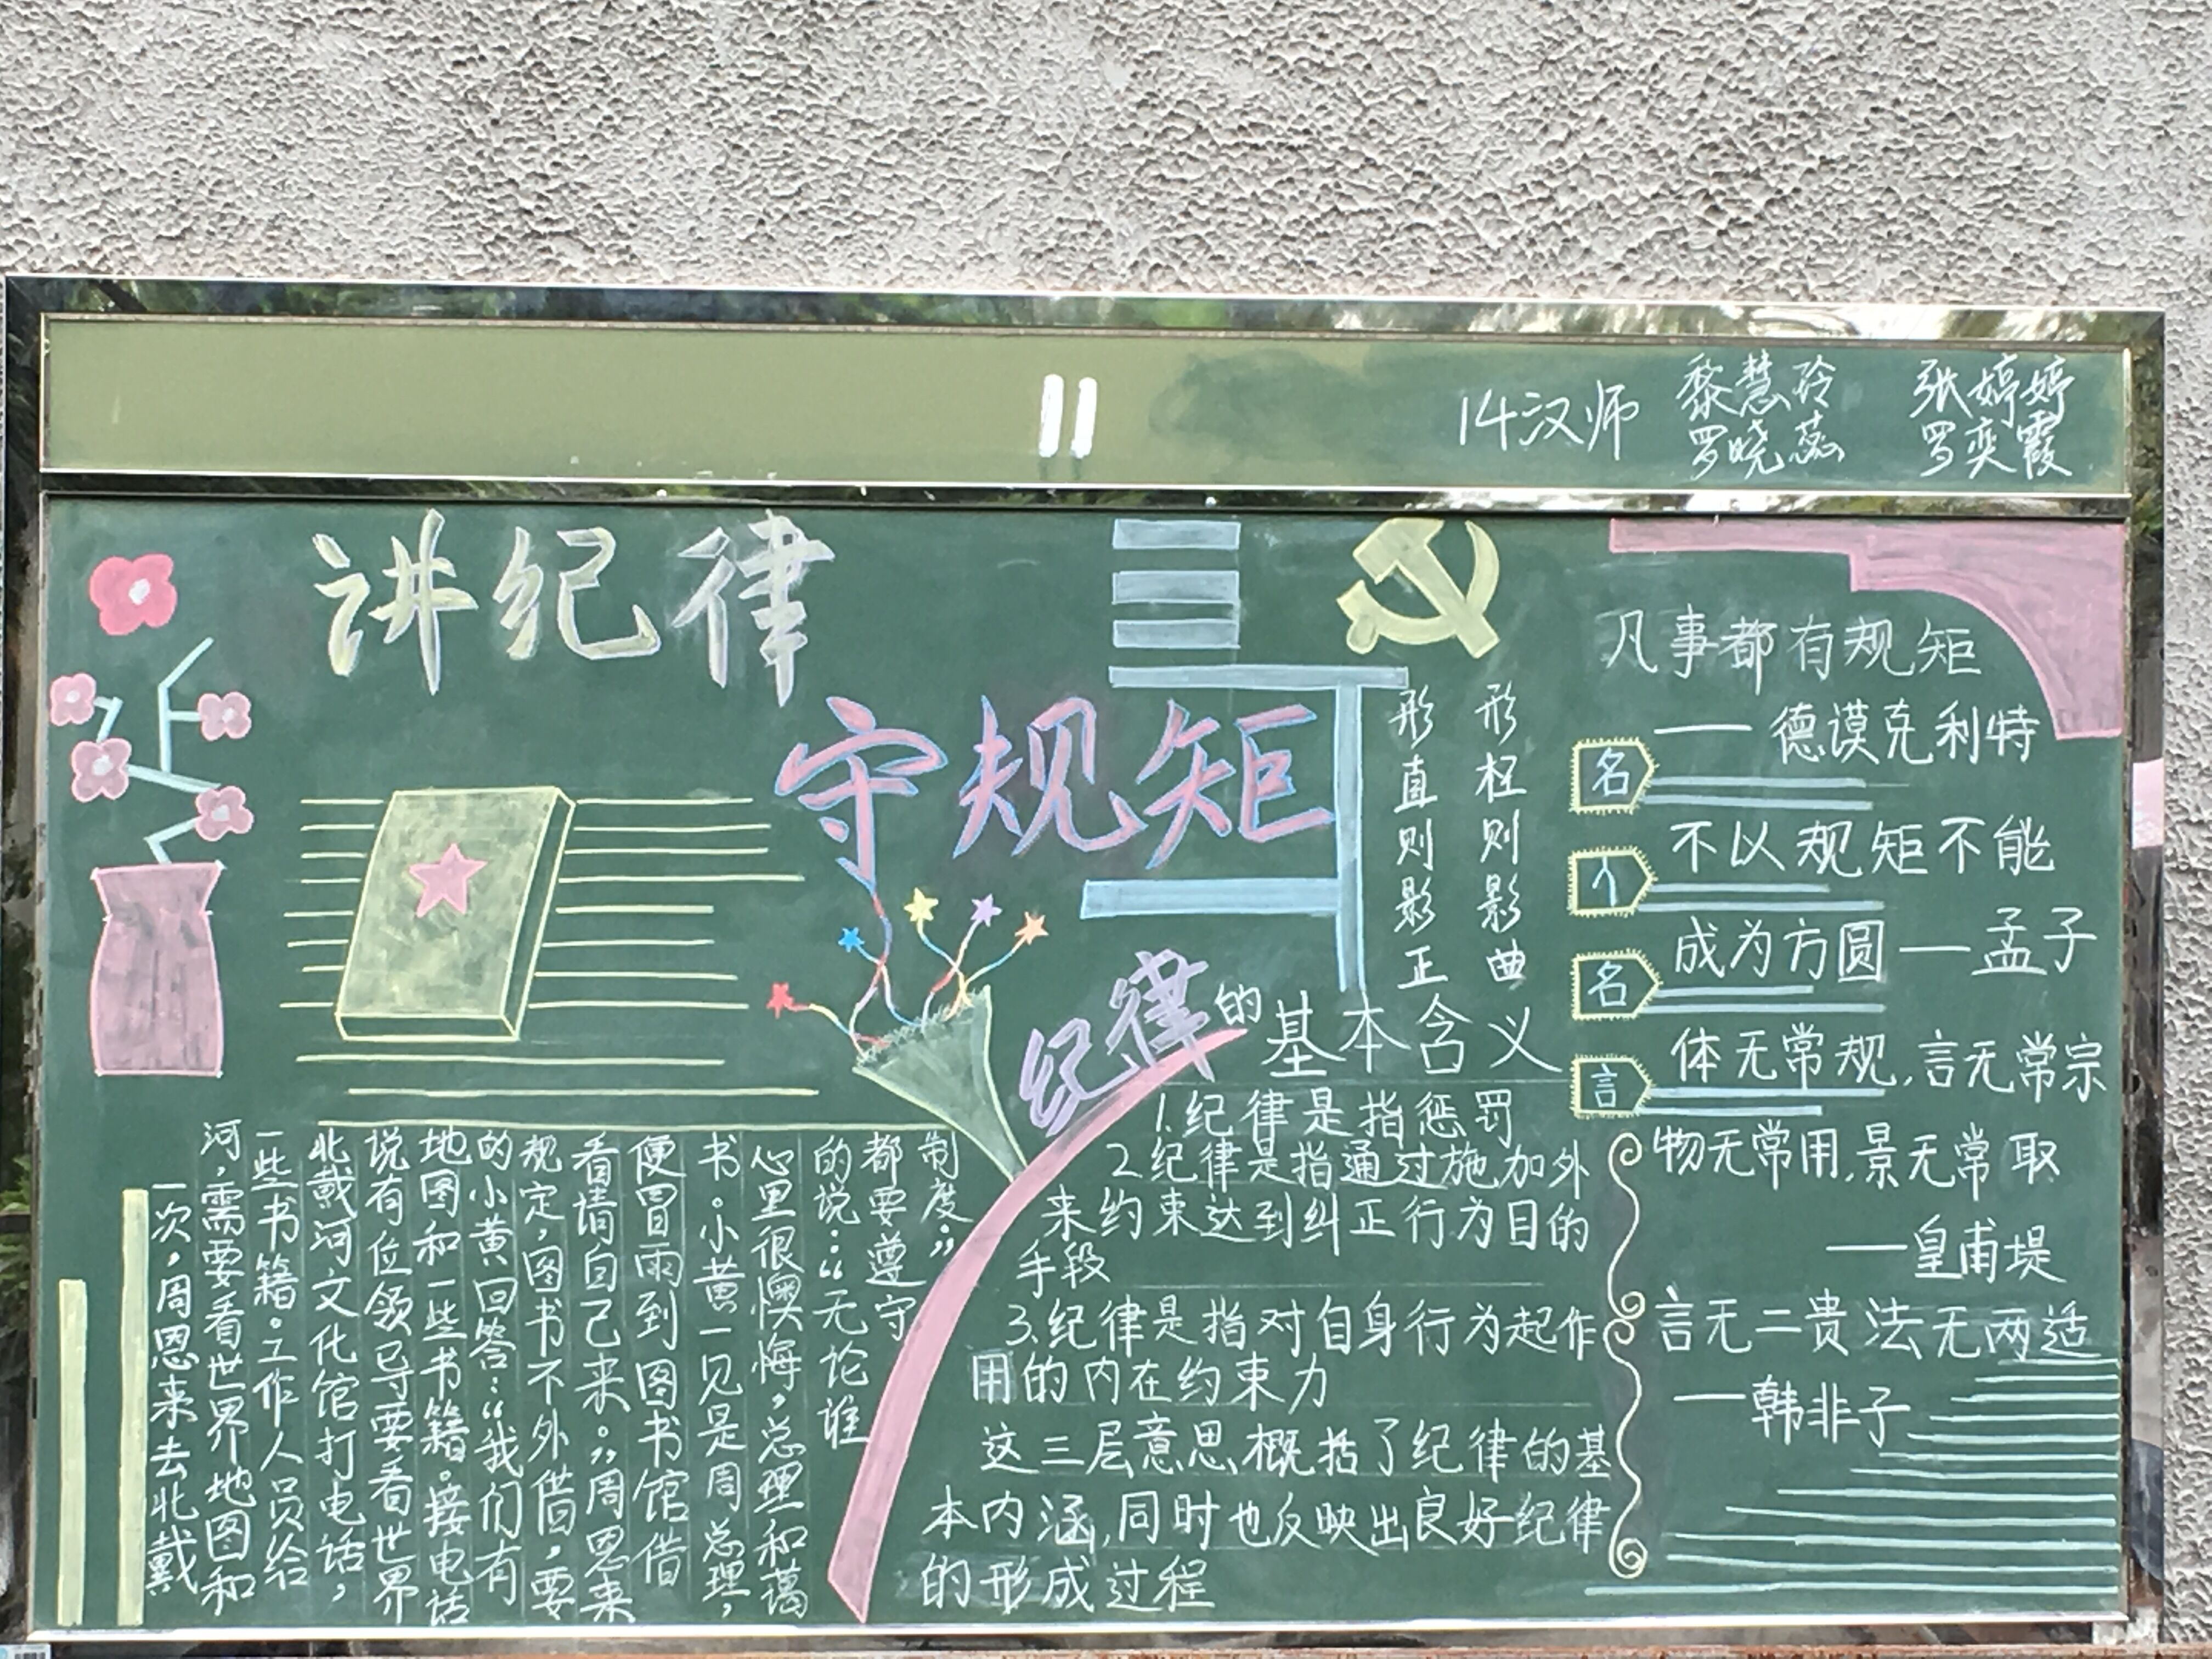 11
14汉师
黎慧玲 张婷婷
罗晓蕊 罗奕霞
讲纪律
守规矩
一次，周恩来去北戴
河，需要看世界地图和
一些书籍。工作人员给
北戴河文化馆打电话，
说有位领导要看世界
地图和一些书籍。接电话
的小黄回答：“我们有
规定，图书不外借，要
看请自己来。”周恩来
便冒雨到图书馆借
书。小黄一见是周总理，
心里很懊悔，总理和蔼
的说：“无论谁
都要遵守
制度。”
形枉则影曲
形直则影正
纪律的基本含义
1.纪律是指惩罚
2.纪律是指通过施加外
来约束达到纠正行为目的
手段
3.纪律是指对自身行为起作
用的内在约束力
这三层意思概括了纪律的基
本内涵,同时也反映出良好纪律
的形成过程
名
人
名
言
凡事都有规矩
——德谟克利特
不以规矩不能
成为方圆——孟子
体无常规,言无常宗
物无常用,景无常取
——皇甫堤
言无二贵法无两适
——韩非子